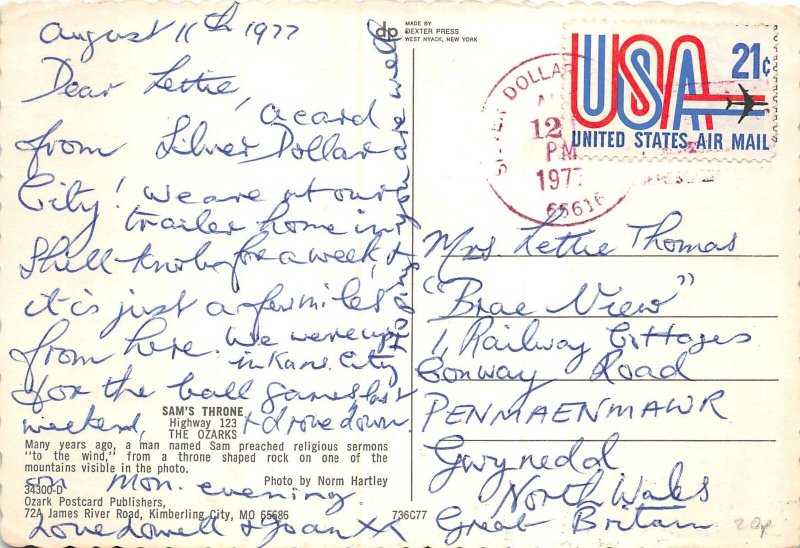 August 11th 1977
Dear Lettie,
a card
from Silver Dollar
City! We are at our
trailer home in
Shell Knob for a week, &
it is just a few miles
from here. We were up
in Kans. City
for the ball games last
weekend, & drove down
on Mon. evening.
Love Lowell & Joan XX
Hoping you are well
SAM'S THRONE
Highway 123
THE OZARKS
Many years ago, a man named Sam preached religious sermons
"to the wind," from a throne shaped rock on one of the
mountains visible in the photo.
Photo by Norm Hartley
34300-D
Ozark Postcard Publishers,
72A James River Road, Kimberling City, MO 65686
736C77
dp
MADE BY
DEXTER PRESS
WEST NYACK, NEW YORK
SILVER DOLLAR
12
PM
1977
65616
USA 21c
UNITED STATES AIR MAIL
Mrs. Lettie Thomas
"Brae View"
1, Railway Cottages
Conway Road
PENMAENMAWR
Gwynedd
North Wales
Great Britain
20p